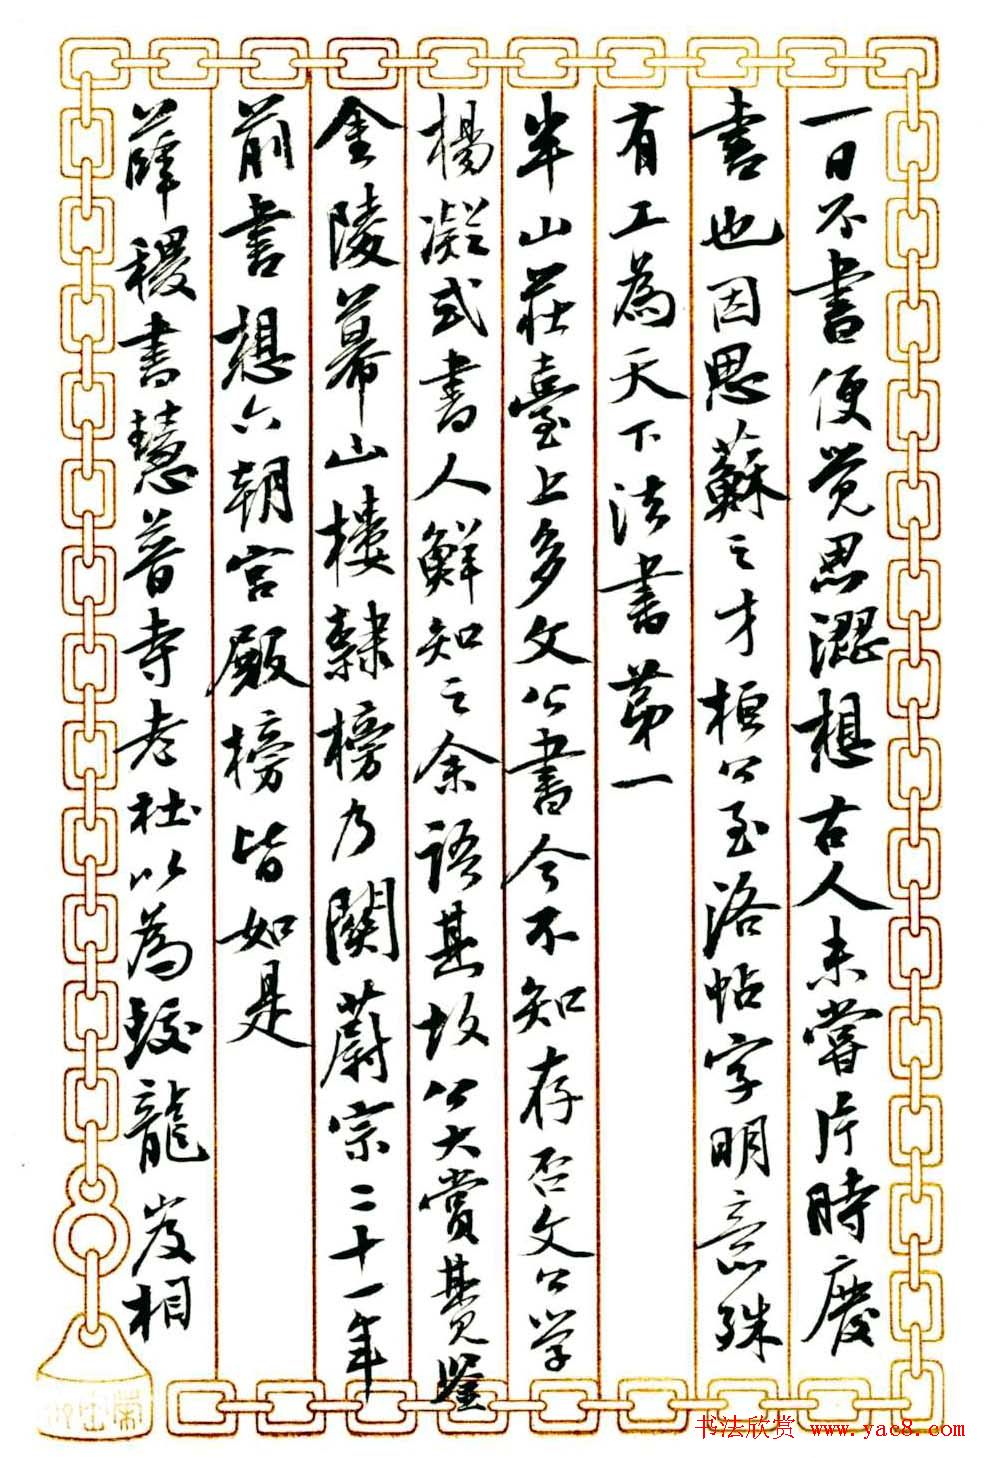 一日不書便觉思澀想古人未嘗片時廢
書也因思蘇之才桓公至洛帖字明意殊
有工為天下法書第一
半山莊臺上多文公書今不知存否文公学
楊凝式書人鮮知之余語其故公大賞其見鉴
金陵幕山樓隸榜乃關蔚宗二十一年
前書想六朝宫殿榜皆如是
薛稷書慧普寺老杜以為蛟龍岌相
书法欣赏 www.yac8.com